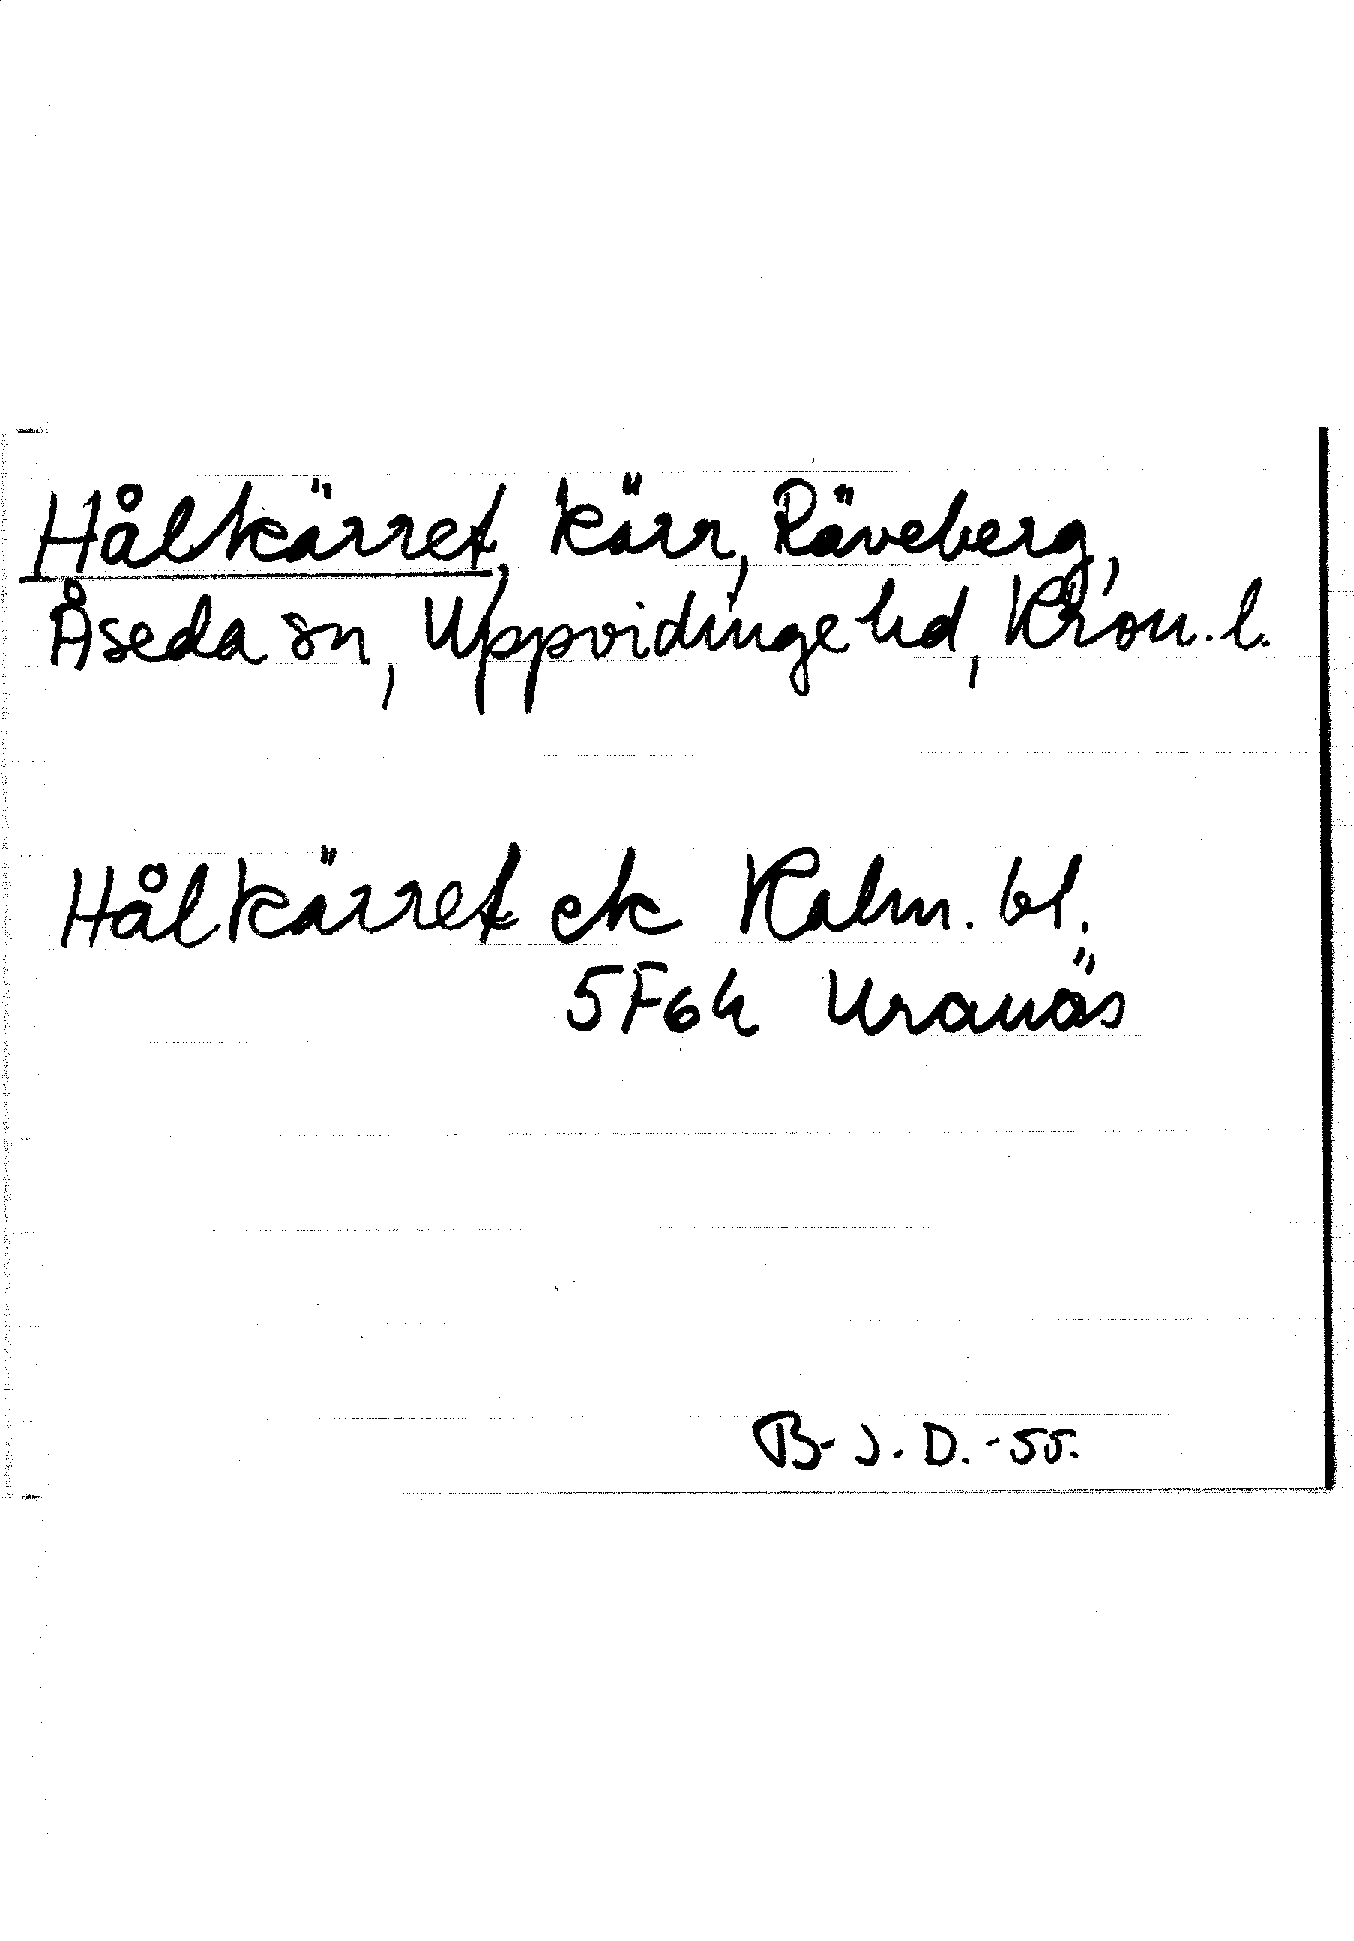 Hålkärret, kärr, Räveberg,
Åseda sn, Uppvidinge hd, Kron. l.
Hålkärret ek Kalm. bl.
5F6h Uranäs
B-J.D.-55.